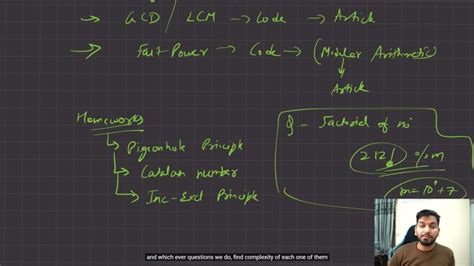 → GCD / LCM → Code → Article
→ Fast Power → Code → (Modular Arithmetic)
↓
Article
Homeworks
→ Pigeonhole Principle
→ Catalan number
→ Inc-Excl Principle
Q - Factorial of no
212! % m
m = 10⁹ + 7
and which ever questions we do, find complexity of each one of them